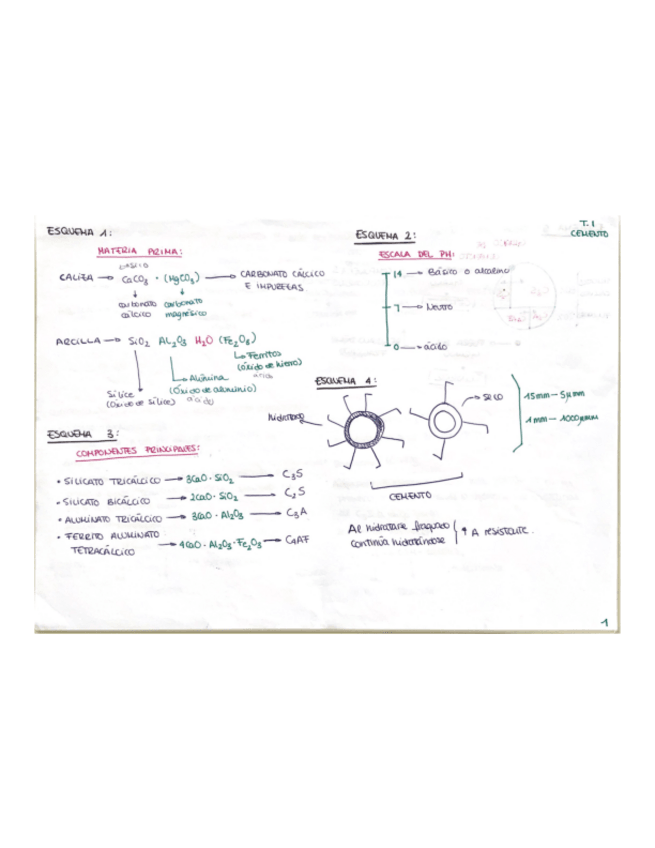 T.1
CEMENTO
ESQUEMA 1:
MATERIA PRIMA:
CALIZA → CaCO3 · (MgCO3) → CARBONATO CÁLCICO
E IMPUREZAS
carbonato cálcico
carbonato magnésico
ARCILLA → SiO2 Al2O3 H2O (Fe2O3)
Ferritos
(Óxido de hierro)
Alúmina
(Óxido de aluminio)
Sílice
(Óxido de sílice)
ácido
ESQUEMA 2:
ESCALA DEL PH
14 → Básico o alcalino
7 → Neutro
0 → ácido
ESQUEMA 3:
COMPONENTES PRINCIPALES:
· SILICATO TRICÁLCICO → 3CaO · SiO2 → C3S
· SILICATO BICÁLCICO → 2CaO · SiO2 → C2S
· ALUMINATO TRICÁLCICO → 3CaO · Al2O3 → C3A
· FERRITO ALUMINATO
TETRACÁLCICO → 4CaO · Al2O3 · Fe2O3 → C4AF
ESQUEMA 4:
hidratado
SECO
15mm — 5µm
1mm — 1000µmm
CEMENTO
Al hidratarse fraguado
continúa hidratándose
↑ A resistente.
1